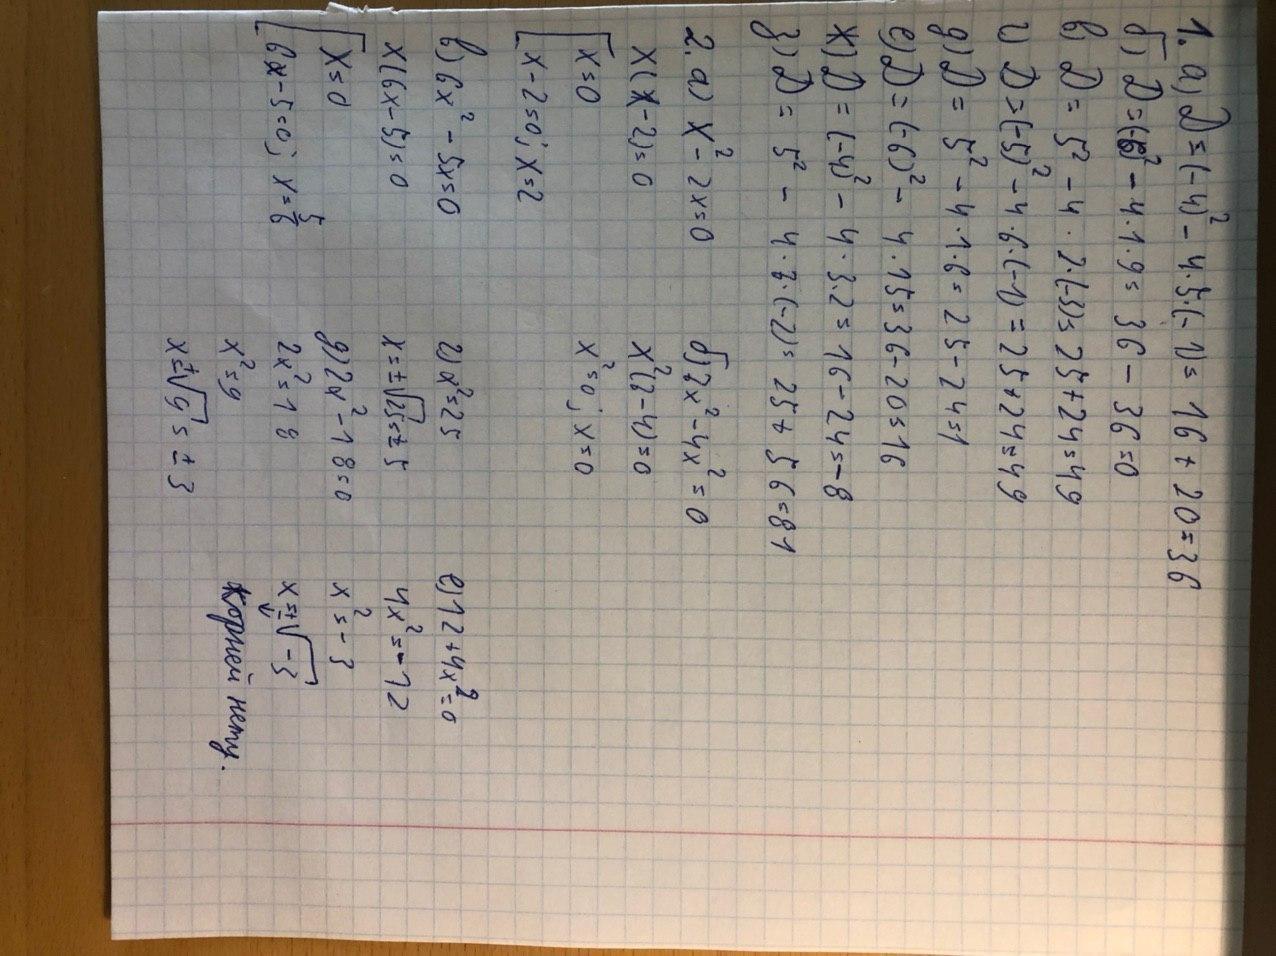 1. а) D=(-4)²-4·5·(-1)= 16+20=36
б) D=(-6)²-4·1·9= 36-36=0
в) D= 5²-4·2·(-3)= 25+24=49
г) D=(-5)²-4·6·(-1)= 25+24=49
д) D= 5²-4·1·6= 25-24=1
е) D=(-6)²-4·1·5=36-20=16
ж) D=(-4)²-4·3·2=16-24=-8
з) D= 5²-4·7·(-2)= 25+56=81
2. а) x²-2x=0
x(x-2)=0
x=0
x-2=0; x=2
б) 2x²-4x²=0
x²(2-4)=0
x²=0; x=0
в) 6x²-5x=0
x(6x-5)=0
x=0
6x-5=0; x=5/6
г) x²=25
x=±√25=±5
д) 2x²-18=0
2x²=18
x²=9
x=±√9=±3
е) 12+4x²=0
4x²=-12
x²=-3
x=±√-3
↓
Корней нету.